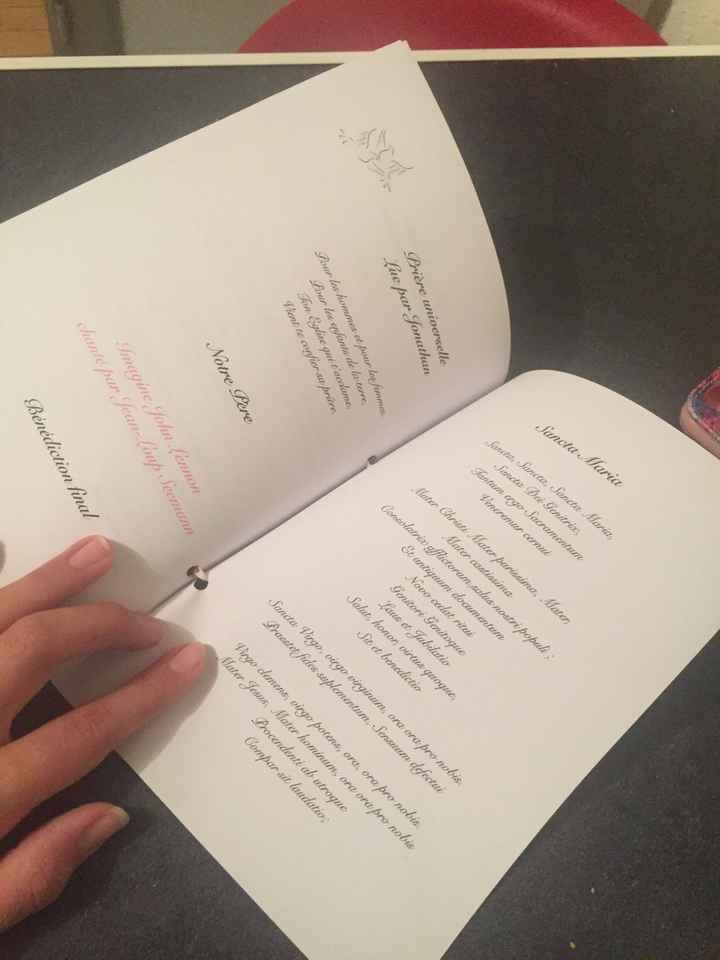 Prière universelle
Lue par Jonathan
Pour les hommes et pour les femmes,
Pour les enfants de la terre,
Ton Eglise qui t'acclame,
Vient te confier sa prière,
Notre Père
Imagine John Lennon
chanté par Jean-Loup Seemann
Bénédiction final
Sancta Maria
Sancta, Sancta, Sancta Maria,
Sancta Dei Genitrix,
Tantum ergo Sacramentum
Veneremur cernui
Mater Christi, Mater purissima, Mater,
Mater castissima
Consolatrix afflictorum, salus nostri populi ;
Et antiquum documentum
Novo cedat ritui
Genitori Genitoque
Laus et Jubilatio
Salut, honor, virtus quoque,
Sit et benedictio
Sancta Virgo, virgo virginum, ora ora pro nobis,
Praestet fides suplementum, Sensuum defectui
Virgo clemens, virgo potens, ora, ora pro nobis,
Mater Jesus, Mater hominum, ora ora pro nobis
Procendenti ab utroque
Compar sit laudatio;